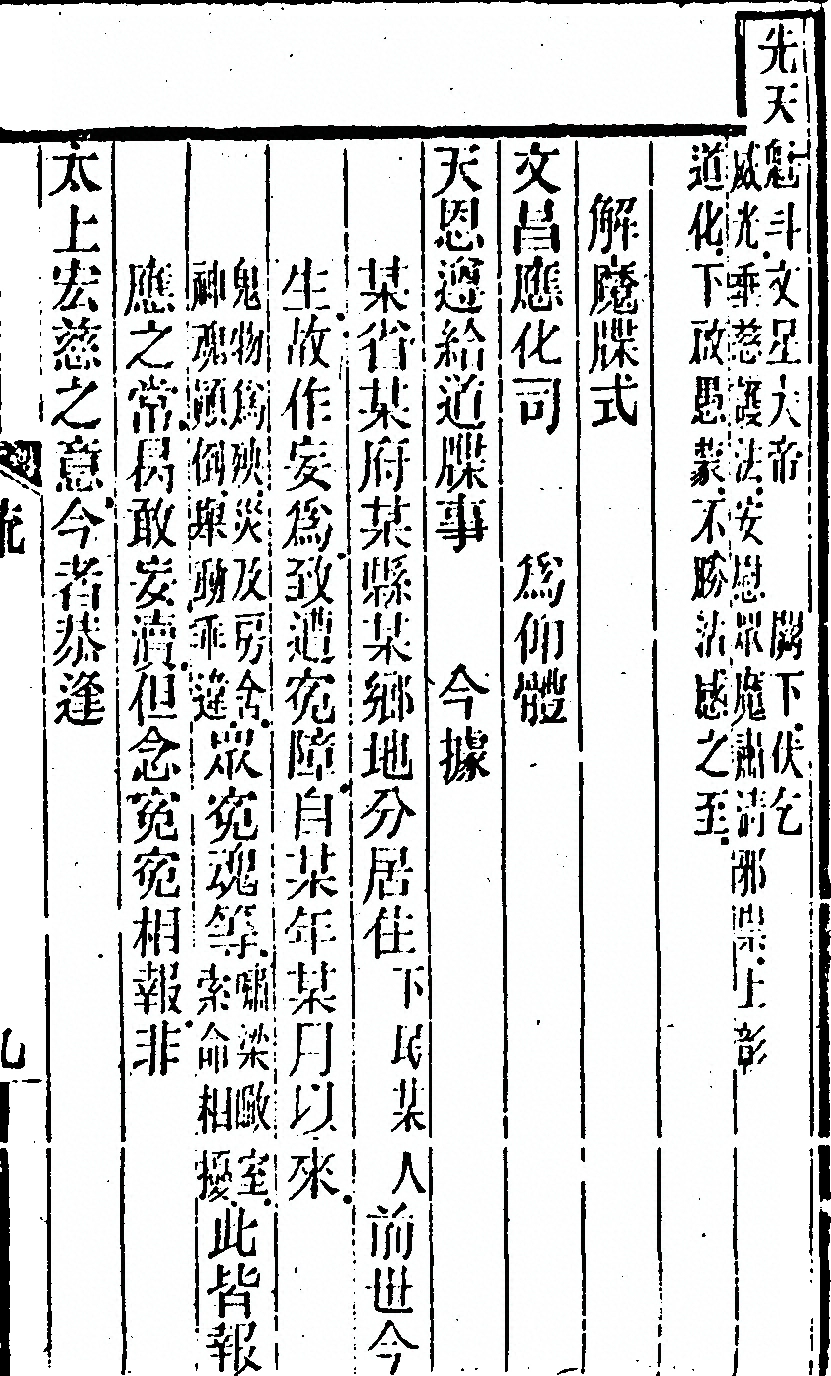 先天魁斗文星大帝 闕下伏乞
威光垂慈護法安慰眾魔肅清邪祟上彰
道化下啟愚蒙不勝沾感之至
解魔牒式
文昌應化司 為仰體
天恩遵給道牒事 今據
某省某府某縣某鄉地分居住下民某人前世今
生故作妄為致遭寃障自某年某月以來
鬼物為殃災及房舍
神魂顛倒舉動乖違
眾寃魂等
嘯梁瞰室
索命相擾
此皆報
應之常曷敢妄瀆但念寃寃相報非
太上宏慈之意今者恭逢
九